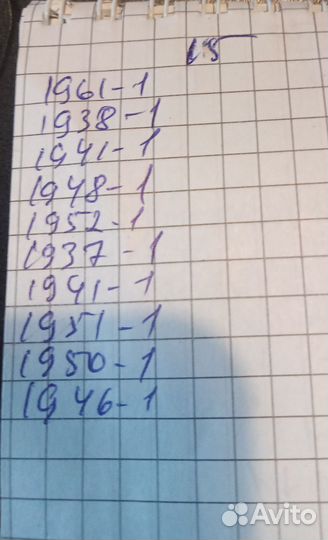 15
1961-1
1938-1
1941-1
1948-1
1952-1
1937-1
1941-1
1951-1
1950-1
1946-1
Avito